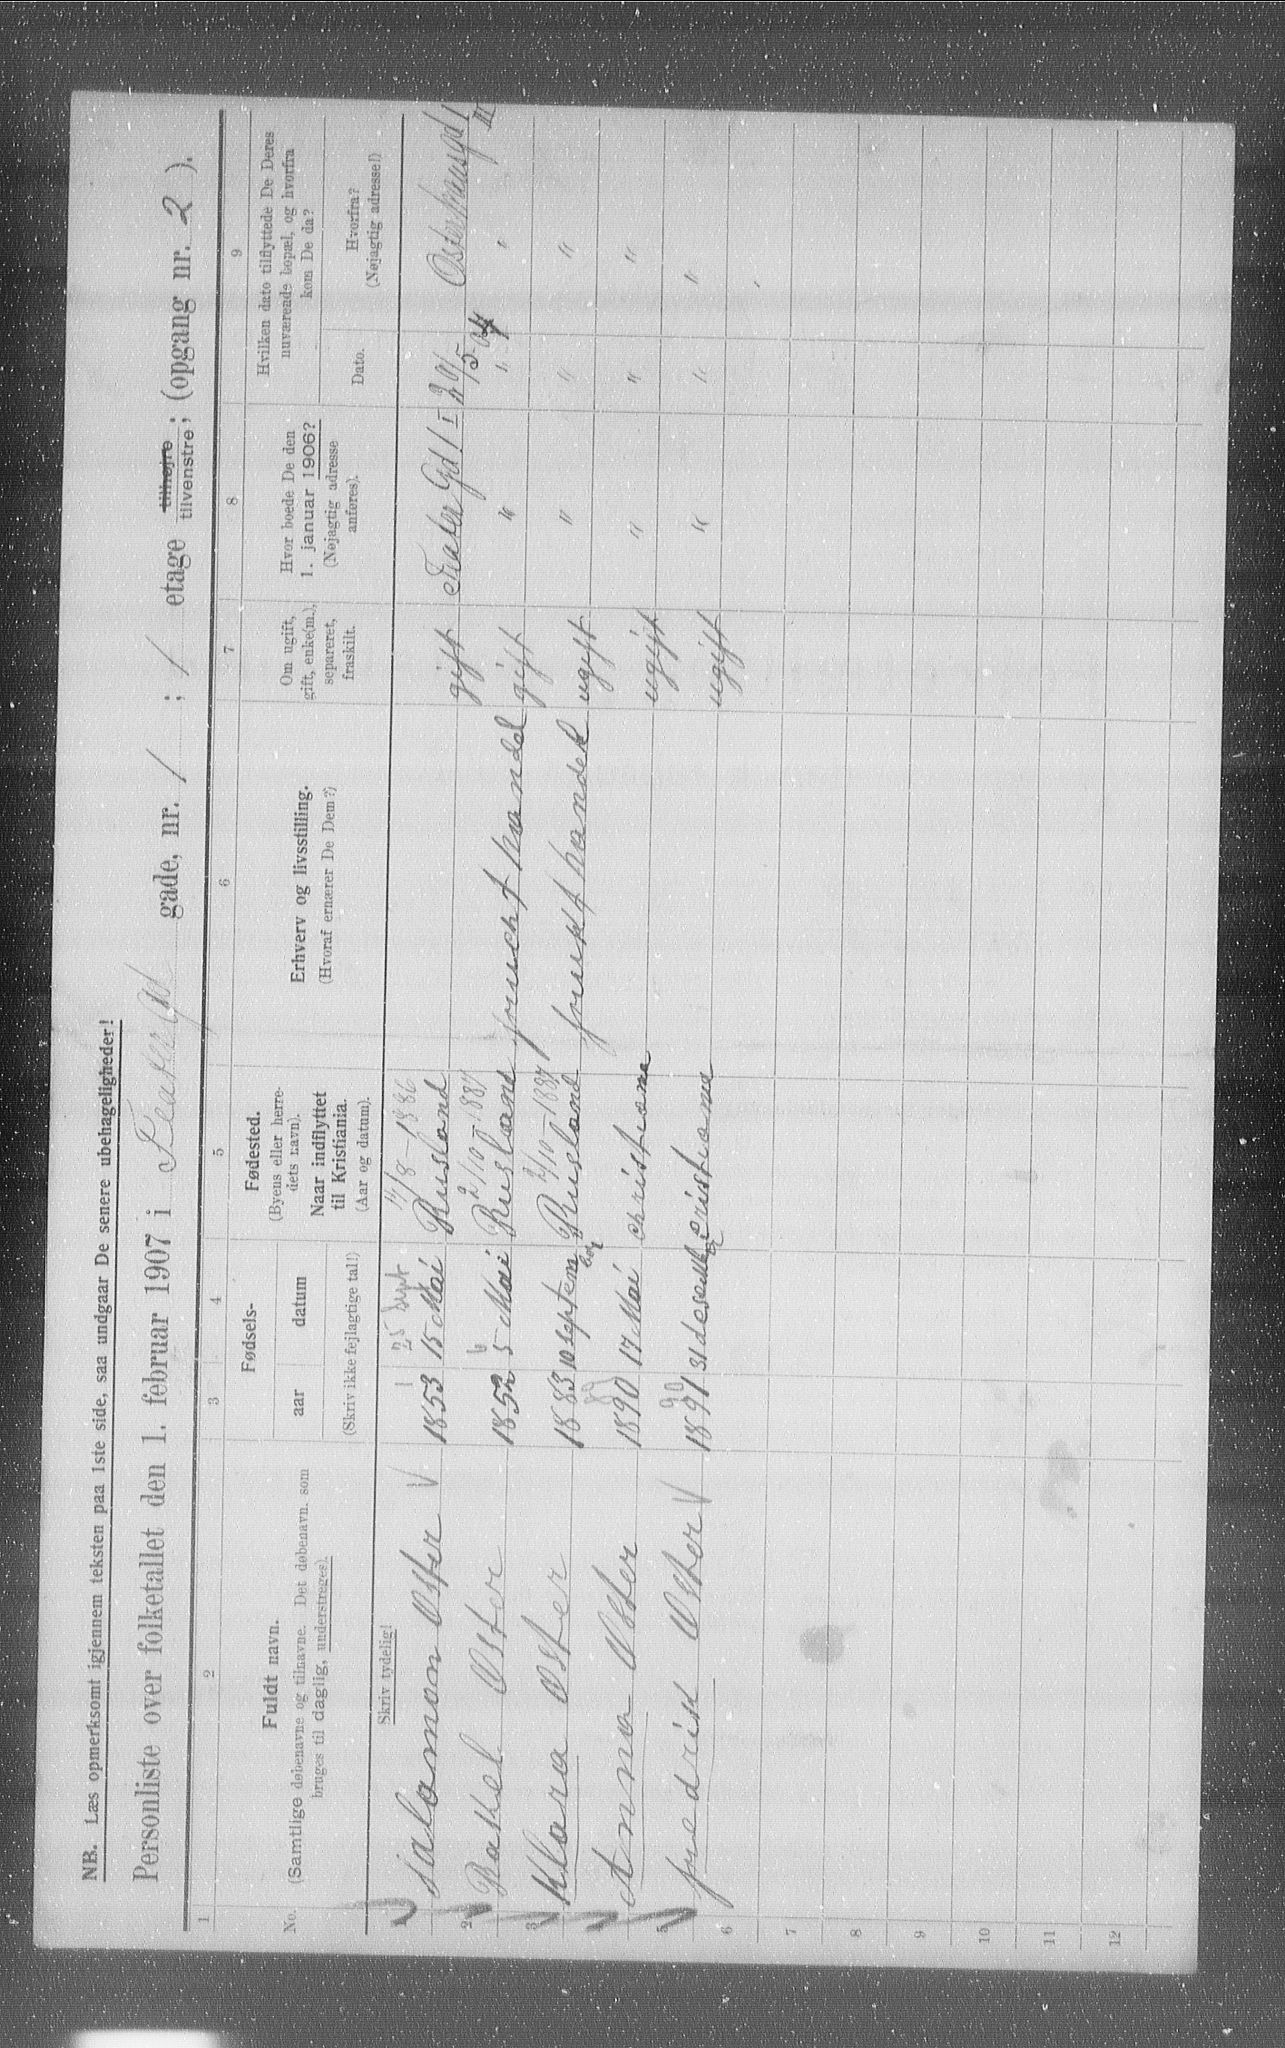 NB. Læs opmerksomt igjennem teksten paa 1ste side, saa undgaar De senere ubehageligheder!
Personliste over folketallet den 1. februar 1907 i Teater gd gade, nr. 1 ; 1 etage tilhøjre tilvenstre ; (opgang nr. 2 ).
1 2 3 4 5 6 7 8 9
No.
Fuldt navn.
(Samtlige døbenavne og tilnavne. Det døbenavn, som
bruges til daglig, understreges).
Fødsels-
aar datum
(Skriv ikke fejlagtige tal!)
Fødested.
(Byens eller herre-
dets navn).
Naar indflyttet
til Kristiania.
(Aar og datum).
Erhverv og livsstilling.
(Hvoraf ernærer De Dem?)
Om ugift,
gift, enke(m.),
separeret,
fraskilt.
Hvor boede De den
1. januar 1906?
(Nøjagtig adresse
anføres).
Hvilken dato tilflyttede De Deres
nuværende bopæl, og hvorfra
kom De da?
Dato.
Hvorfra?
(Nøjagtig adresse!)
Skriv tydelig!
1 25 Sept 14/8-1886
salomon Oster 1853 15 Mai Rusland gift Teater Gd 1 I 29/5 04 Osterhausgd 1 III
6 2/10-1887
2 Rakel Oster 1852 5 Mai Rusland frucht handel gift " " "
2/10-1887
3 Klara Oster 1883 10 september Rusland frukt handel ugift " " "
89
4 Anna Oster 1890 17 Mai christiana ugift " " "
90
5 fredrik Oster 1891 31 desember cristiana ugift " " "
6
7
8
9
10
11
12